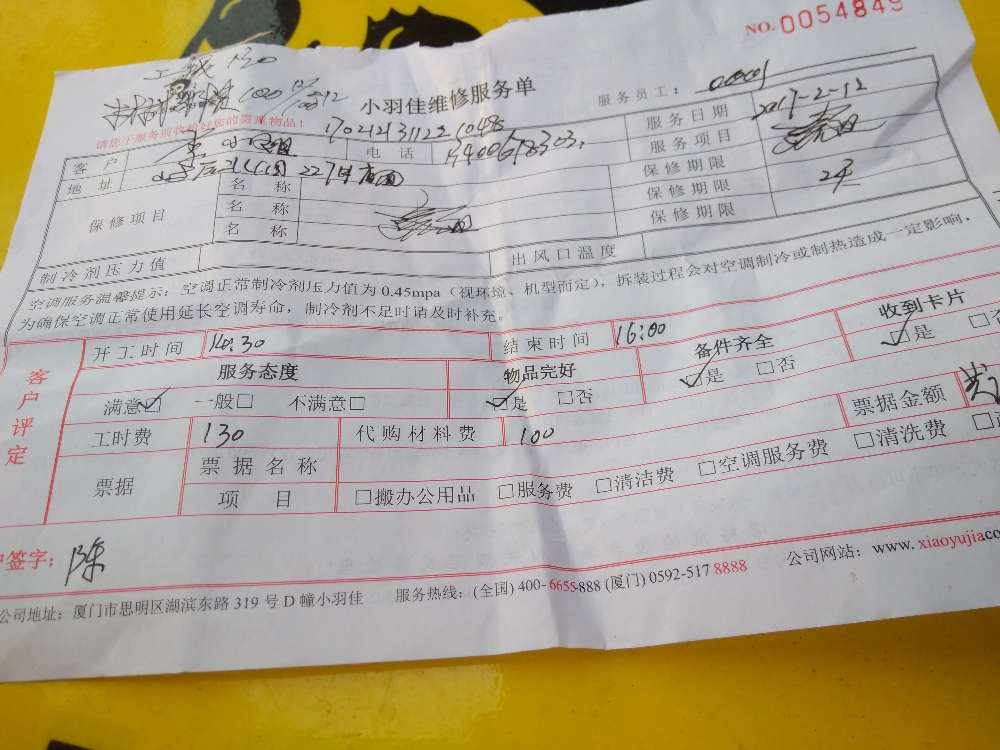 NO. 0054849
工钱 130
小羽佳维修服务单
服务员工:
请您于服务前收拾好您的贵重物品!
17021213112210498
客户
电话
服务日期 2017-2-12
地址
服务项目
保修项目
名称
保修期限
名称
保修期限
名称
保修期限
制冷剂压力值
出风口温度
空调服务温馨提示:空调正常制冷剂压力值为0.45mpa(视环境、机型而定),拆装过程会对空调制冷或制热造成一定影响,
为确保空调正常使用延长空调寿命,制冷剂不足时请及时补充。
客户评定
开工时间 14:30
结束时间 16:00
服务态度
物品完好
备件齐全
收到卡片
满意☑ 一般□ 不满意□
☑是 □否
☑是 □否
☑是 □否
工时费 130
代购材料费 100
票据金额
票据
票据名称
项目
□搬办公用品 □服务费 □清洁费 □空调服务费 □清洗费
户签字: 陈
公司地址:厦门市思明区湖滨东路319号D幢小羽佳 服务热线:(全国)400-6655-888 (厦门)0592-517 8888 公司网站:www.xiaoyujiaco